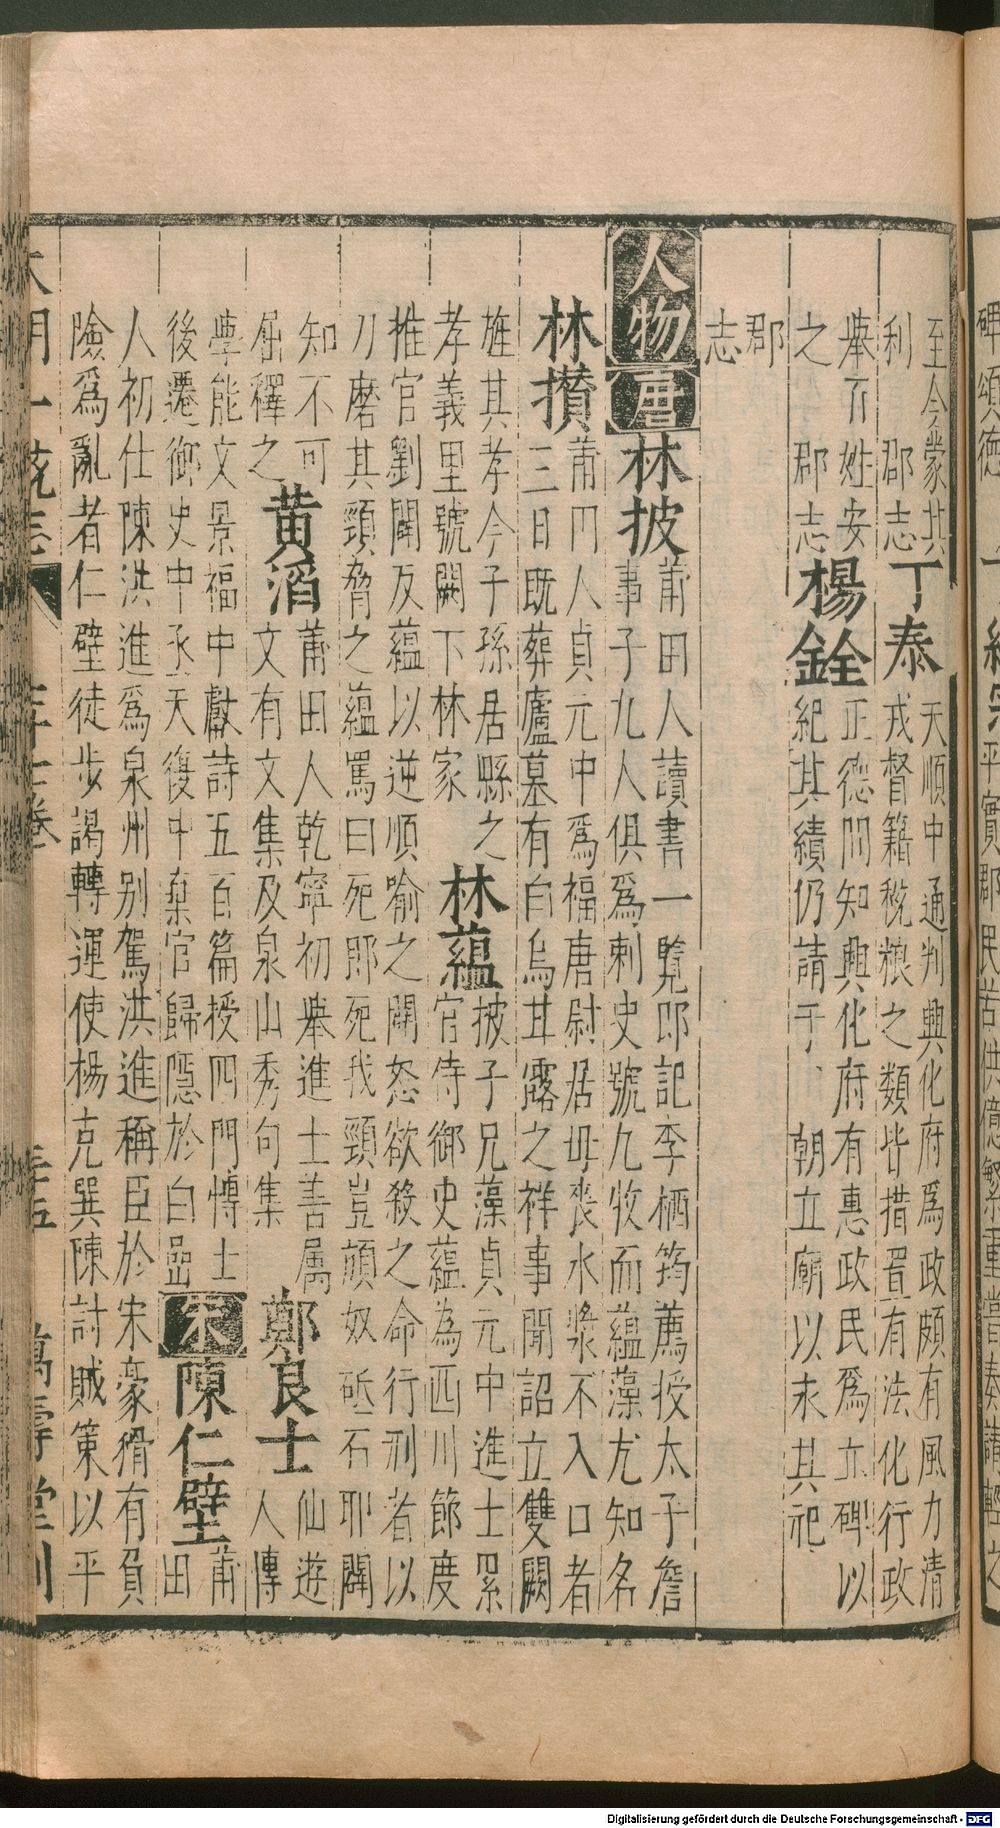 至今蒙其
利　郡志
丁泰
天順中通判興化府爲政頗有風力清
戎督籍稅粮之類皆措置有法化行政
舉百姓安
之　郡志
楊銓
正德間知興化府有惠政民爲立碑以
紀其績仍請于　朝立廟以永其祀
郡
志
人物
唐
林披
莆田人讀書一覽即記李栖筠薦授太子詹
事子九人俱爲刺史號九牧而蘊藻尤知名
林攢
莆田人貞元中爲福唐尉居母喪水漿不入口者
三日既葬廬墓有白烏甘露之祥事聞詔立雙闕
旌其孝今子孫居縣之
孝義里號闕下林家
林蘊
披子兄藻貞元中進士累
官侍御史蘊為西川節度
推官劉闢反蘊以逆順喻之闢怒欲殺之命行刑者以
刀磨其頸脅之蘊罵曰死即死我頸豈頑奴砥石耶闢
知不可
屈釋之
黃滔
莆田人乾寧初舉進士善属
文有文集及泉山秀句集
鄭良士
仙遊
人博
學能文景福中獻詩五百篇授四門博士
後遷御史中丞天復中棄官歸隱於白巖
宋
陳仁壁
莆
田
人初仕陳洪進爲泉州别駕洪進稱臣於宋豪猾有負
險爲亂者仁壁徒步謁轉運使楊克巽陳討賊策以平
大明一統志
萬壽堂刊
碑頌德
平實郡民苦供億繁重嘗奏請輕之
Digitalisierung gefördert durch die Deutsche Forschungsgemeinschaft - DFG